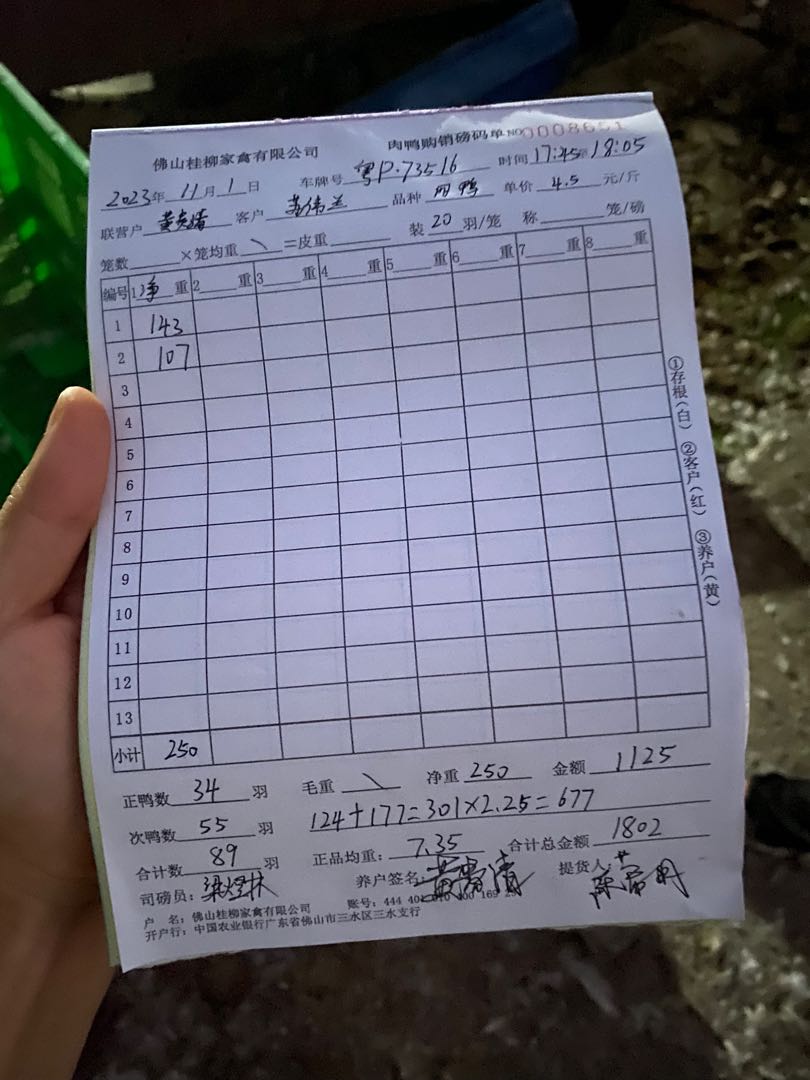 佛山桂柳家禽有限公司 肉鸭购销磅码单 NO 0008651
2023年 11月 1日 车牌号 粤P·73516 时间 17:45至18:05
联营户 客户 品种 肉鸭 单价 4.5 元/斤
笼数 ×笼均重 \ =皮重 装 20 羽/笼 称 笼/磅
编号 1净重 2 重 3 重 4 重 5 重 6 重 7 重 8 重
1 143
2 107
3
4
5
6
7
8
9
10
11
12
13
小计 250
①存根(白) ②客户(红) ③养户(黄)
正鸭数 34 羽 毛重 \ 净重 250 金额 1125
次鸭数 55 羽 124+177=301×2.25=677
合计数 89 羽 正品均重: 7.35 合计总金额 1802
司磅员: 养户签名: 提货人:
户 名: 佛山桂柳家禽有限公司 账号: 444 40
开户行: 中国农业银行广东省佛山市三水区三水支行